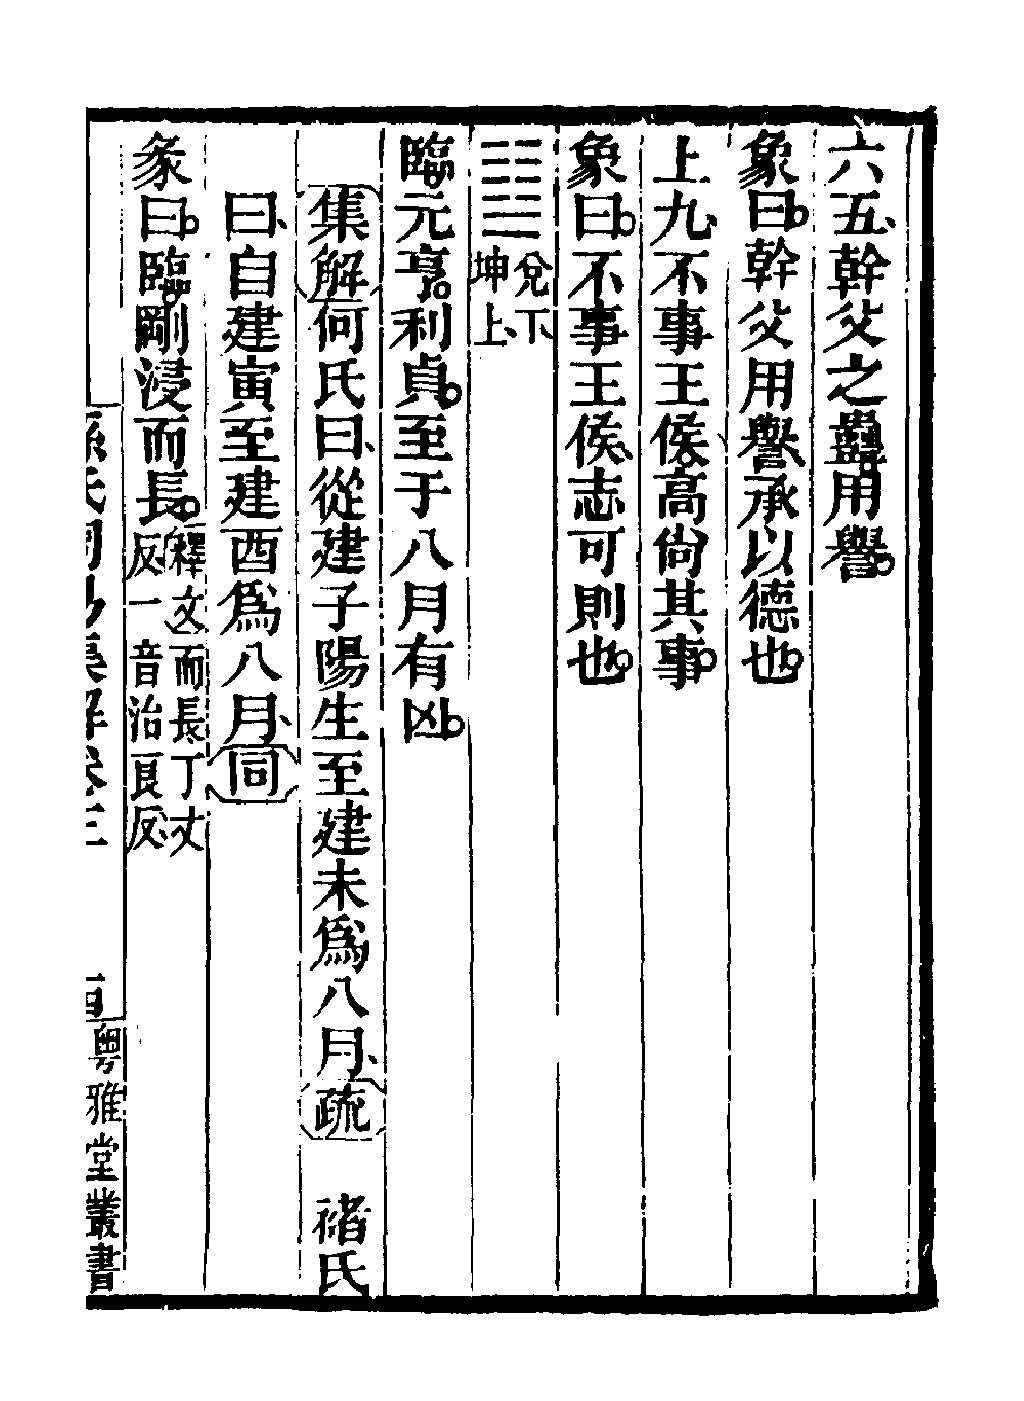 六五、幹父之蠱用譽。
象曰。幹父用譽、承以德也。
上九、不事王侯、高尚其事。
象曰。不事王侯、志可則也。
䷒兌下
坤上、
臨。元亨。利貞。至于八月有凶。
集解何氏曰、從建子陽生至建未爲八月、疏　褚氏
曰、自建寅至建酉爲八月、同
彖曰。臨剛浸而長。釋文而長、丁丈
反、一音治良反、
孫氏周易集解卷三
粵雅堂叢書